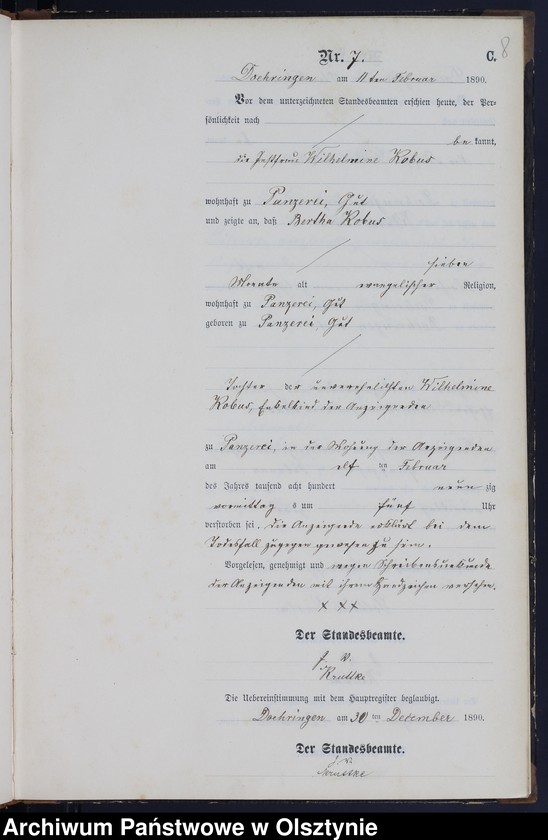 8
Nr. 7.
C.
Doehringen am 11ten Februar 1890.
Vor dem unterzeichneten Standesbeamten erschien heute, der Per-
sönlichkeit nach
be kannt,
die Wilhelmine Kobus
wohnhaft zu Panzerei, Gut
und zeigte an, daß Bertha Kobus
sieben
Monate alt evangelischer Religion,
wohnhaft zu Panzerei, Gut
geboren zu Panzerei Gut
Tochter der unverehelichten Wilhelmine
Kobus, Enkelkind der Anzeigenden
zu Panzerei, in der Wohnung der Anzeigenden
am elf ten Februar
des Jahres tausend acht hundert neun zig
vormittag s um fünf Uhr
verstorben sei. Die Anzeigende erklärt bei dem
Todesfall zugegen gewesen zu sein.
Vorgelesen, genehmigt und wegen Schreibensunkunde
der Anzeigenden mit ihrem Handzeichen versehen.
x x x
Der Standesbeamte.
J. V.
Die Uebereinstimmung mit dem Hauptregister beglaubigt.
Doehringen am 30 ten Dezember 1890.
Der Standesbeamte.
J. V.
Archiwum Państwowe w Olsztynie